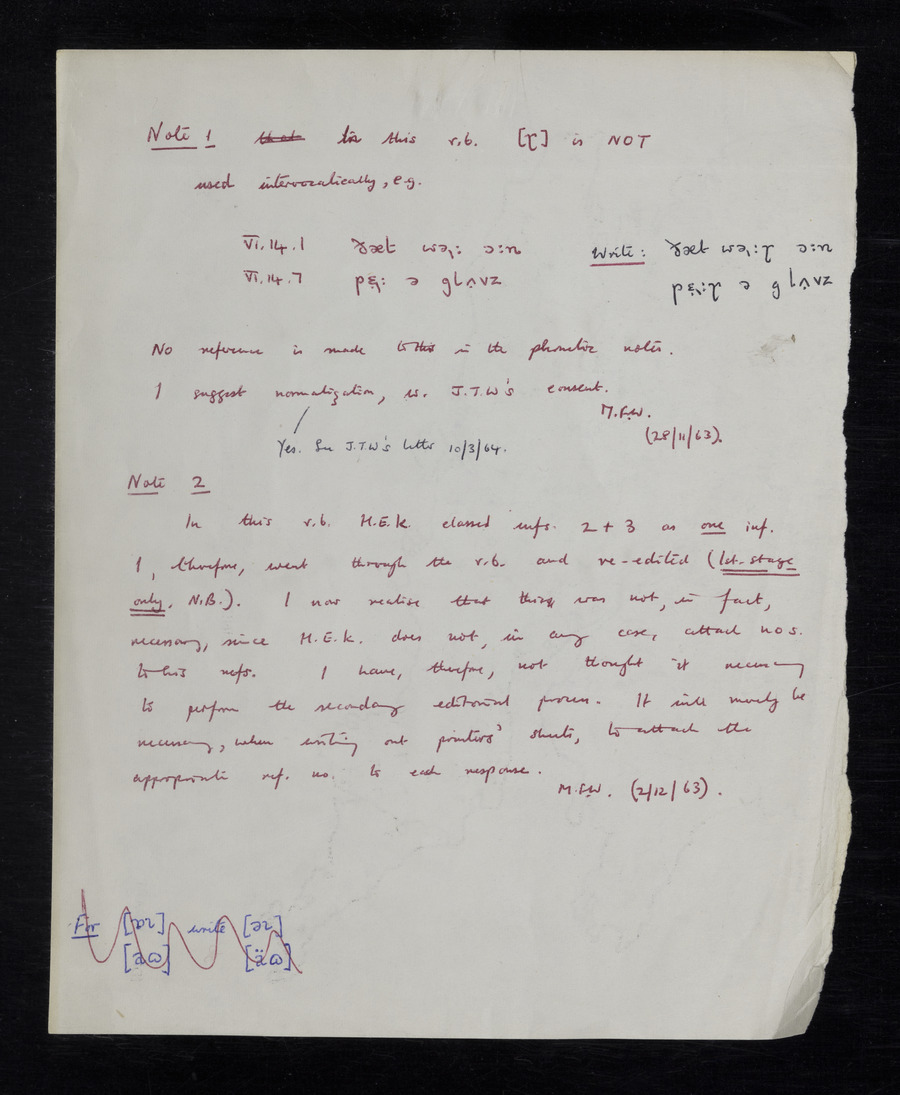 Note 1 that In this r.b. [ɽ] is NOT
used intervocalically, e.g.
VI.14.1 ðæt wəɻ: ɔ:n Write: ðæt wəɻ:ɽ ɔ:n
VI.14.7 pɛɻ: ə glʌvz pɛɻ:ɽ ə glʌvz
No reference is made to this in the phonetic notes.
I suggest normalization, w. J.T.W's consent.
M.F.W.
(28/11/63).
Yes. See J.T.W's letter 10/3/64.
Note 2
In this r.b. H.E.K. classed infs. 2 + 3 as one inf.
I, therefore, went through the r.b. and re-edited (1st. stage
only, N.B.). I now realise that this was not, in fact,
necessary, since H.E.K. does not, in any case, attach nos.
to his infs. I have, therefore, not thought it necessary
to perform the secondary editorial process. It will merely be
necessary, when writing out printers' sheets, to attach the
appropriate inf. no. to each response.
M.F.W. (2/12/63).
For write